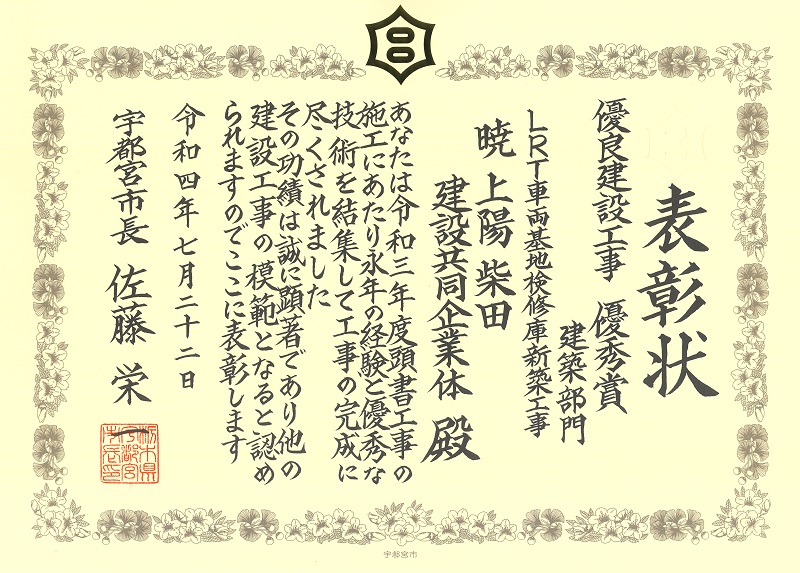 表彰状
優良建設工事　優秀賞
建築部門
LRT車両基地検修庫新築工事
暁　上陽　柴田
建設共同企業体　殿
あなたは令和三年度頭書工事の
施工にあたり永年の経験と優秀な
技術を結集して工事の完成に
尽くされました
その功績は誠に顕著であり他の
建設工事の模範となると認め
られますのでここに表彰します
令和四年七月二十二日
宇都宮市長　佐藤　栄一
栃木県
宇都宮
市長印
宇都宮市